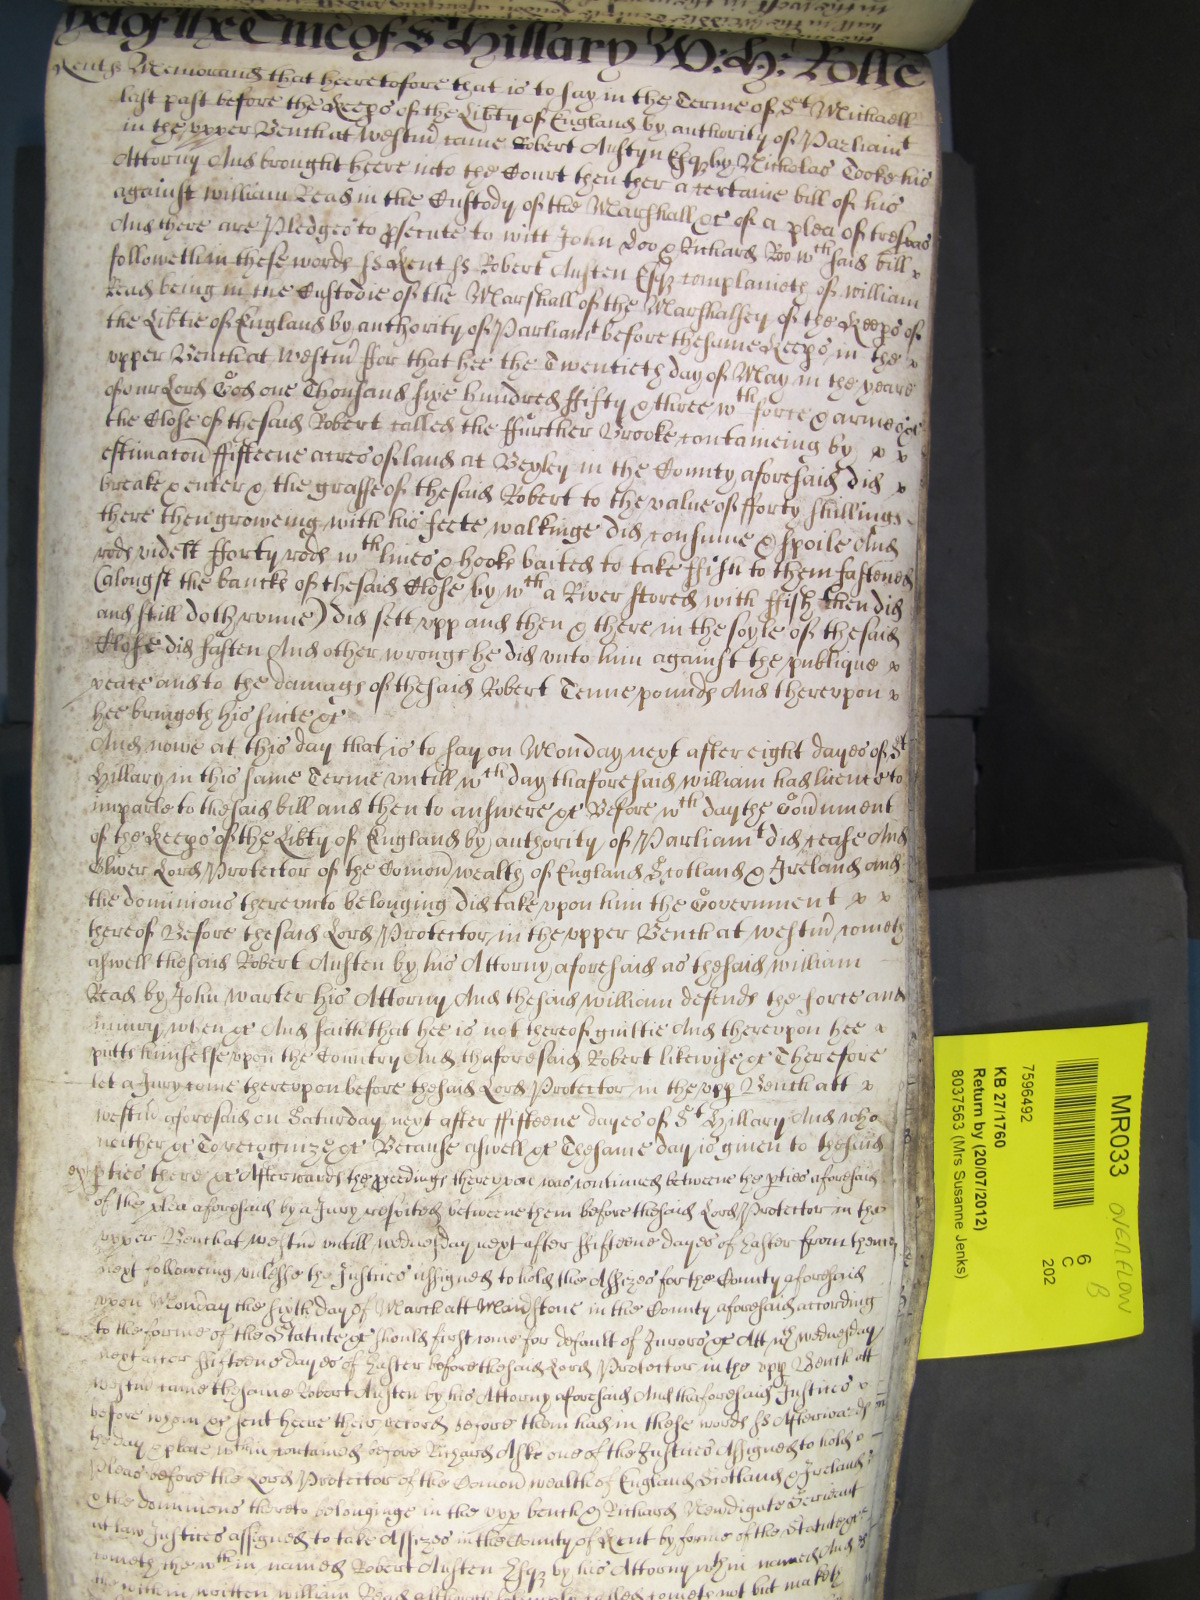 yet of the Tme of St Hillary W: H: Rolle
Kent ss Memorand that heeretofore that is to say in the Terme of St Michaell
last past before the Keeps of the Libty of England by authority of Parliamt
in the upper Bench at Westmr came Robert Austyn Esqr by Nicholas Cooke his
Attorny And brought heere into the Court then ther a certaine bill of his
against William Read in the Custody of the Marshall &c of a plea of trespas
And there are Pledges to psecute to witt John Doo & Richard Roo wth said bill
followeth in these words ss Kent ss Robert Austen Esqr complaineth of William
Read being in the Custodie of the Marshall of the Marshalsey of the Keeps of
the Libtie of England by authority of Parliamt before the same Keeps in the
upper Bench at Westmr ffor that hee the Twentieth day of May in the yeare
of our Lord God one Thousand sixe hundred ffifty & three wth force & armes &c
the Close of the said Robert called the ffurther Brooke containeing by
estimacon ffifteene acres of land at Bexley in the County aforesaid did
breake & enter & the grasse of the said Robert to the value of fforty shillings
there then groweing with his feete walkinge did consume & spoile And
rods videlt fforty rods wth lines & hooks baited to take ffish to them fastened
(alongst the bancks of the said Close by wth a River stored with ffish then did
and still doth runne) did sett upp and then & there in the soyle of the said
Close did fasten And other wrongs he did unto him against the publique
peace and to the damage of the said Robert Tenne pounds And thereupon
hee bringeth his suite &c
And nowe at this day that is to say on Monday next after eight dayes of St
Hillary in this same Terme untill wth day thaforesaid William had licence to
imparle to the said bill and then to answere &c Before wth day the Govrnment
of the Keeps of the Libty of England by authority of Parliamt did cease And
Oliver Lord Protector of the Comon wealth of England Scotland & Ireland and
the dominions thereunto belonging did take upon him the Government
thereof Before the said Lord Protector in the upper Bench at Westmr cometh
aswell the said Robert Austen by his Attorny aforesaid as the said William
Read by John Warter his Attorny And the said William defends the force and
iniury when &c And saith that hee is not thereof guiltie And thereupon hee
putts himselfe upon the Country And thaforesaid Robert likewise &c Therefore
let a Jury come thereupon before the said Lord Protector in the upp Bench att
Westmr aforesaid on Saturday next after ffifteene dayes of St Hillary And who
neither &c To recognize &c Because aswell &c The same day is given to the said
pties there &c Afterwards the pceedings thereupon was continued betweene the pties aforesaid
of the plea aforesaid by a Jury respited betweene them before the said Lord Protector in the
upper Bench at Westmr untill Wednesday next after ffifteene dayes of Easter from thence
next following unlesse the Justices assigned to hold the Assizes for the County aforesaid
upon Monday the sixth day of March att Maidstone in the County aforesaid according
to the forme of the Statute &c should first come for default of Jurors &c Att wch Wednesday
next after ffifteene dayes of Easter before the said Lord Protector in the upp Bench att
Westmr came the same Robert Austen by his Attorny aforesaid And thaforesaid Justices
before whom &c sent heere their record before them had in these words ss Afterwards
the day & place wthin contained before Richard Aske one of the Justices Assigned to hold
pleas before the Lord Protector of the Comon wealth of England Scotland & Ireland
& the dominions thereto belonginge in the upp bench & Richard Newdigate Serieant
at law Justices assigned to take Assizes in the County of Kent by forme of the Statute &c
cometh the wthin named Robert Austen Esqr by his Attorny wthin named And
the within written William Read although solemply called cometh not but maketh
MR033
OVERFLOW
B
7596492
6
C
202
KB 27/1760
Return by (20/07/2012)
8037563 (Mrs Susanne Jenks)